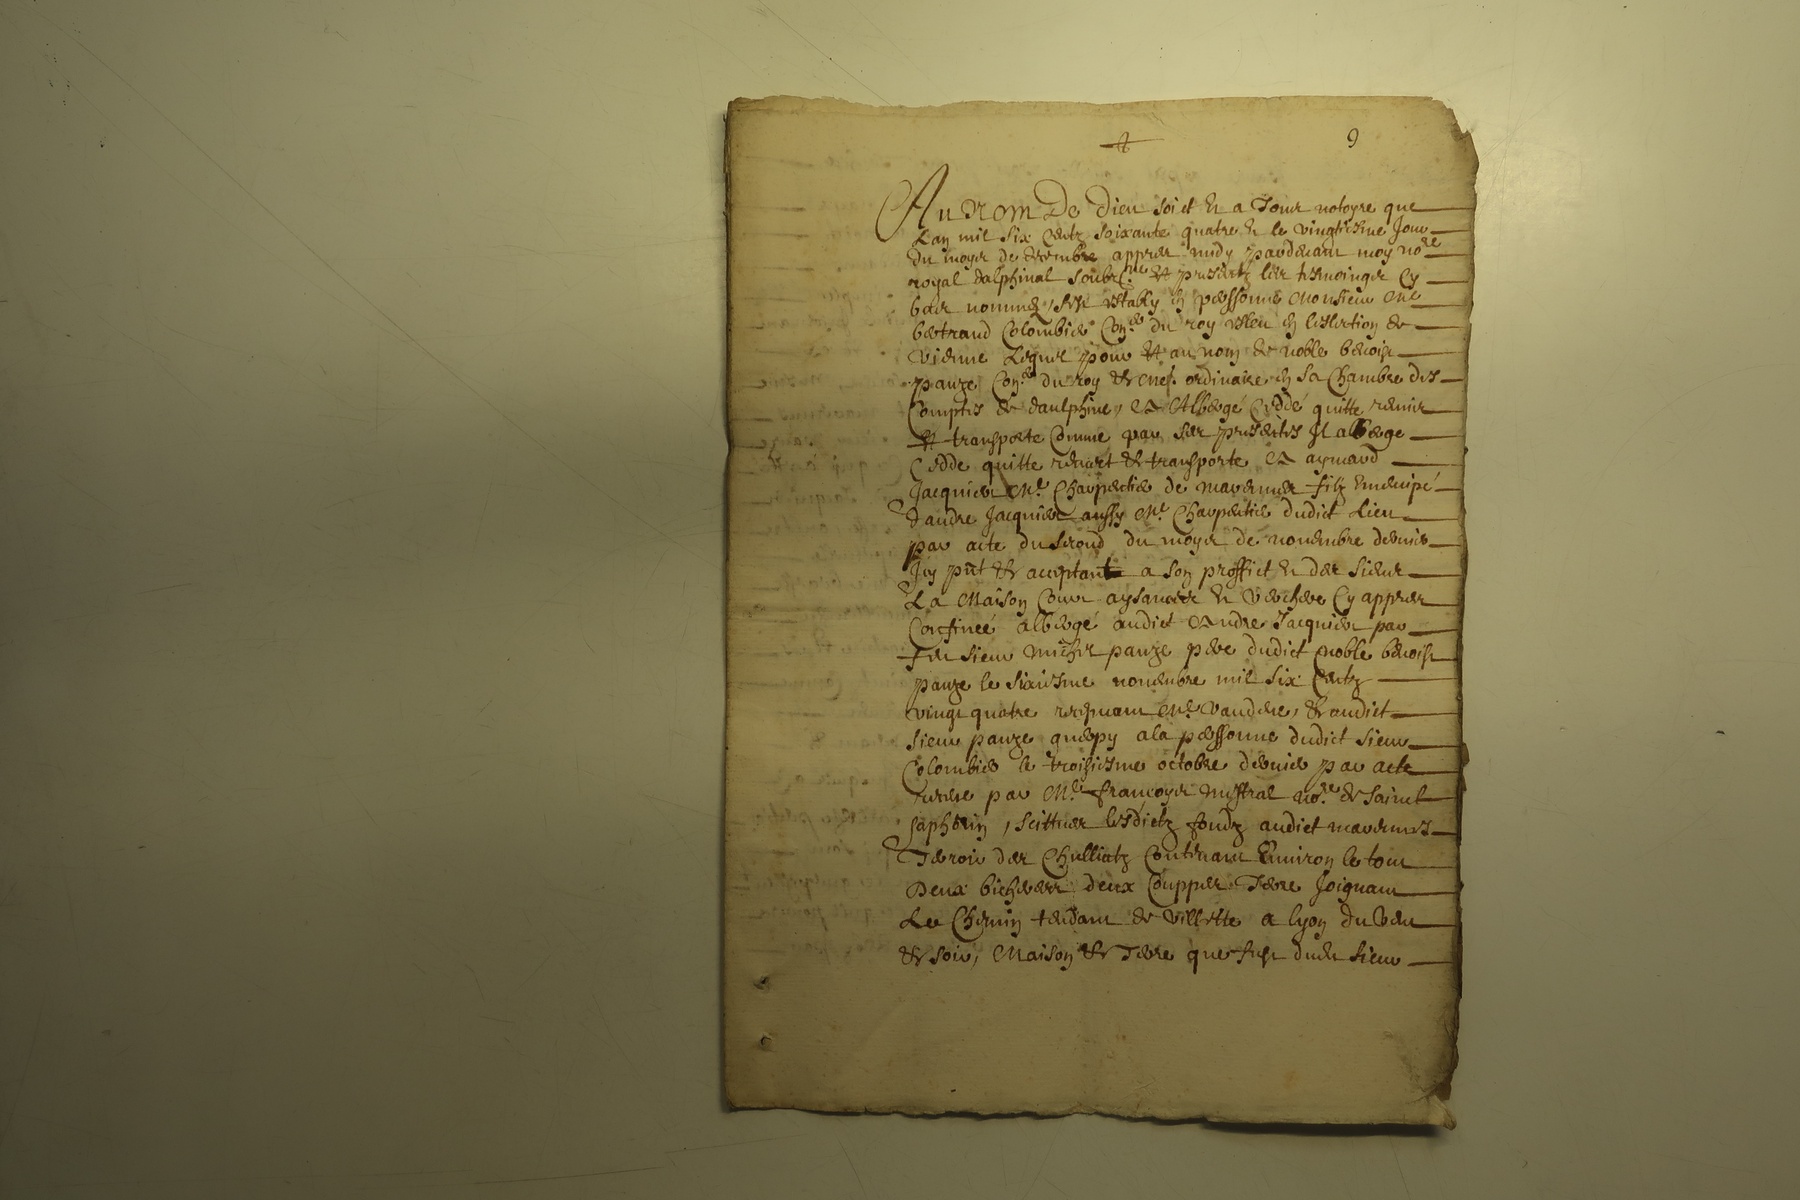 9
Au nom De Dieu soict et a Tous notoyre que
Lan mil six centz soixante quatre et le vingtiesme Jour
du moys de decembre appres midy pardevant moy no.re
royal dalphinal soubz.ne et presentz les tesmoingz cy
bas nommez, sest estably en personne Monsieur Me
bertrand Colombier Con.er du roy esleu en leslection de
vienne Lequel pour et au nom de noble benoist
panze Con.er du roy et Me. ordinaire en sa Chambre des
Comptes de daulphine, a Albergé Ceddé quitte remis
et transporte Comme par ses presentes Il alberge
Cedde quitte remet et transporte a aymard
Jacquier Me. Charpentier de marennes filz emencipé
dandre Jacquier aussy Me. Charpentier dudict Lieu
par acte du second du moys de novembre dernier
Icy pnt et acceptant a son proffict et des siens
La Maison Cour aysances et verchere Cy appres
Confinée albergé audict Andre Jacquier par
feu sieur Michel panze pere dudict noble benoist
panze le sixiesme novembre mil six Centz
vingt quatre recepvant Me. vaudere, et audict
sieur panze a la personne dudict sieur
Colombier le troisiesme octobre dernier par acte
receue par Me. francoys mistral no.re de sainct
saphorin, scittues lesdictz fondz audict marennes
Terroir des Chulliatz Contenant Environ le tout
Deux bicherees deux Couppes Terre Joignant
Le Chemin tendant de villette a lyon du vent
et soir, Maison et Terre que fust dudit sieur